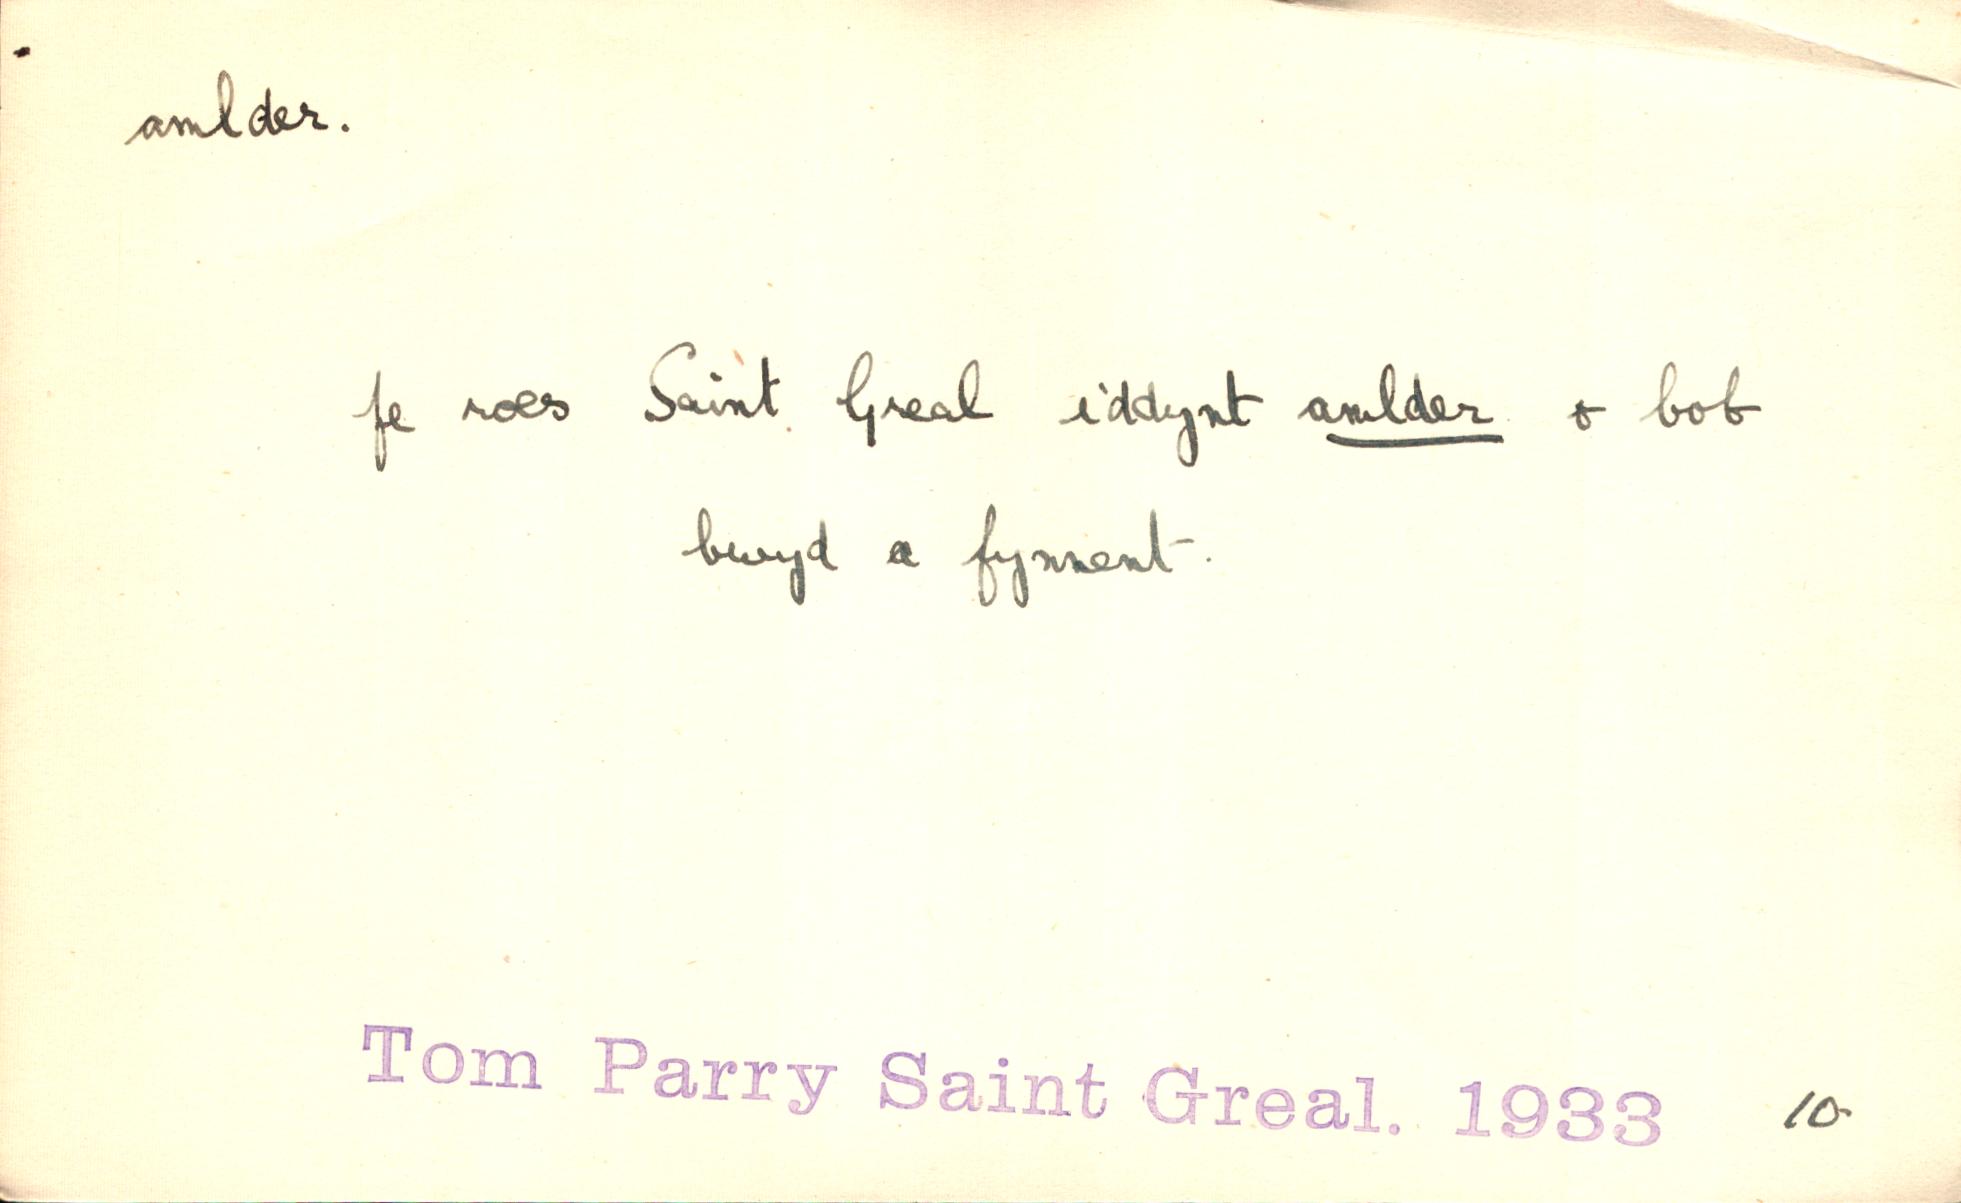 amlder.
fe roes Saint Greal iddynt amlder o bob
bwyd a fynnent.
Tom Parry Saint Greal. 1933 10